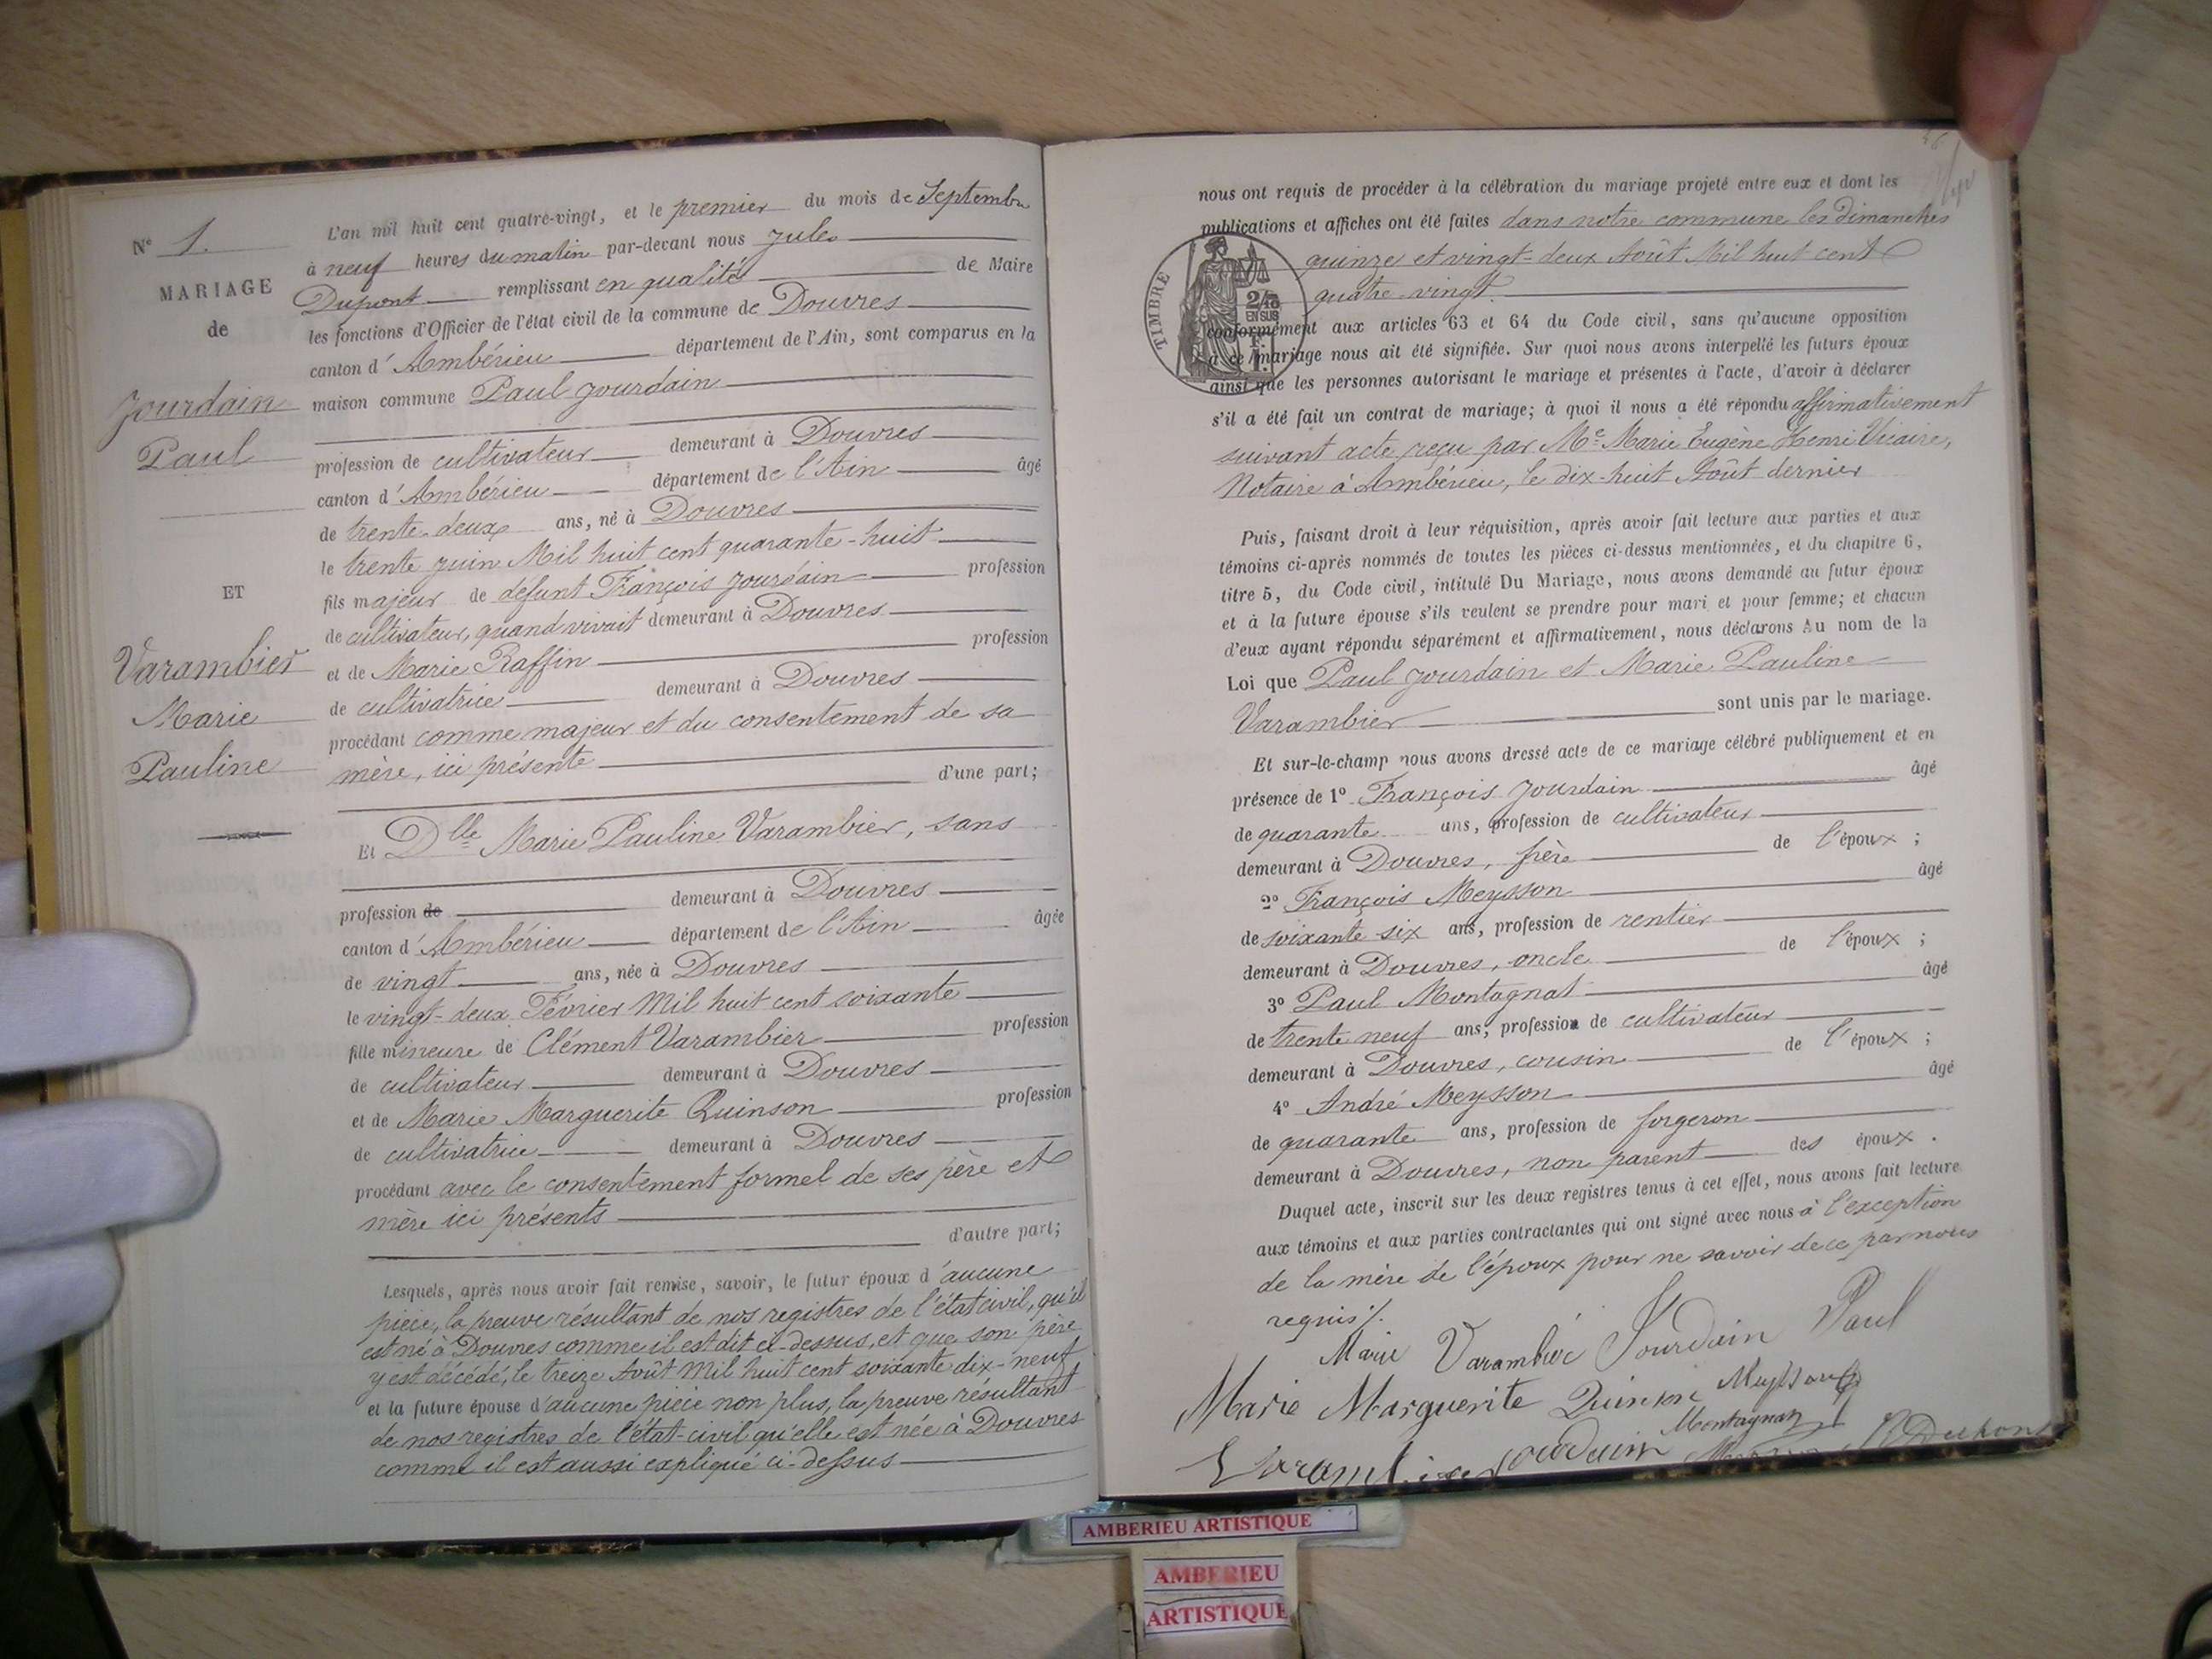 N° 1.
MARIAGE
de
Jourdain
Paul
ET
Varambier
Marie
Pauline
L'an mil huit cent quatre-vingt, et le premier du mois de Septembre
à neuf heures du matin par-devant nous Jules
Dupont remplissant en qualité de Maire
les fonctions d'Officier de l'état civil de la commune de Douvres
canton d'Ambérieu département de l'Ain, sont comparus en la
maison commune Paul Jourdain
profession de cultivateur demeurant à Douvres
canton d'Ambérieu département de l'Ain âgé
de trente-deux ans, né à Douvres
le trente juin Mil huit cent quarante-huit
fils majeur de défunt François Jourdain profession
de cultivateur, quand vivait demeurant à Douvres
et de Marie Raffin profession
de cultivatrice demeurant à Douvres
procédant comme majeur et du consentement de sa
mère, ici présente d'une part;
Et Dlle Marie Pauline Varambier, sans
profession de demeurant à Douvres
canton d'Ambérieu département de l'Ain âgée
de vingt ans, née à Douvres
le vingt-deux Février Mil huit cent soixante
fille mineure de Clément Varambier profession
de cultivateur demeurant à Douvres
et de Marie Marguerite Quinson profession
de cultivatrice demeurant à Douvres
procédant avec le consentement formel de ses père et
mère ici présents
d'autre part;
Lesquels, après nous avoir fait remise, savoir, le futur époux d'aucune
pièce, la preuve résultant de nos registres de l'état civil, qu'il
est né à Douvres comme il est dit ci-dessus, et que son père
y est décédé, le treize Août Mil huit cent soixante dix-neuf
et la future épouse d'aucune pièce non plus, la preuve résultant
de nos registres de l'état-civil qu'elle est née à Douvres
comme il est aussi expliqué ci-dessus
nous ont requis de procéder à la célébration du mariage projeté entre eux et dont les
publications et affiches ont été faites dans notre commune les dimanches
quinze et vingt-deux Août Mil huit cent
quatre-vingt.
TIMBRE
2/10
EN SUS
F.
1.
conformément aux articles 63 et 64 du Code civil, sans qu'aucune opposition
à ce mariage nous ait été signifiée. Sur quoi nous avons interpellé les futurs époux
ainsi que les personnes autorisant le mariage et présentes à l'acte, d'avoir à déclarer
s'il a été fait un contrat de mariage; à quoi il nous a été répondu affirmativement
suivant acte reçu par Me Marie Eugène Henri Vicaire,
Notaire à Ambérieu, le dix-huit Août dernier
Puis, faisant droit à leur réquisition, après avoir fait lecture aux parties et aux
témoins ci-après nommés de toutes les pièces ci-dessus mentionnées, et du chapitre 6,
titre 5, du Code civil, intitulé Du Mariage, nous avons demandé au futur époux
et à la future épouse s'ils veulent se prendre pour mari et pour femme; et chacun
d'eux ayant répondu séparément et affirmativement, nous déclarons Au nom de la
Loi que Paul Jourdain et Marie Pauline
Varambier sont unis par le mariage.
Et sur-le-champ nous avons dressé acte de ce mariage célébré publiquement et en
présence de 1° François Jourdain âgé
de quarante ans, profession de cultivateur
demeurant à Douvres, frère de l'époux ;
2° François Meysson âgé
de soixante-six ans, profession de rentier
demeurant à Douvres, oncle de l'époux ;
3° Paul Montagnat âgé
de trente neuf ans, profession de cultivateur
demeurant à Douvres, cousin de l'époux ;
4° André Meysson âgé
de quarante ans, profession de forgeron
demeurant à Douvres, non parent des époux.
Duquel acte, inscrit sur les deux registres tenus à cet effet, nous avons fait lecture
aux témoins et aux parties contractantes qui ont signé avec nous à l'exception
de la mère de l'époux pour ne savoir de ce par nous
requis ./.
Marie Varambié Jourdain Paul
Marie Marguerite Quinson Meysson
Montagnat
Varambier Jourdain Dupont
AMBERIEU ARTISTIQUE
AMBERIEU
ARTISTIQUE